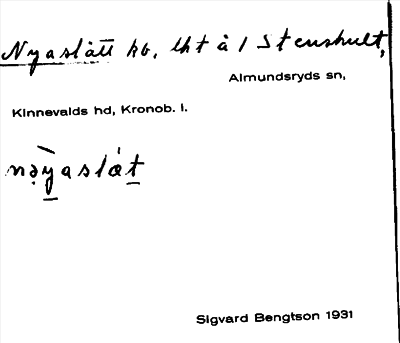 Nyaslätt hg, lht å 1 Stenshult,
Almundsryds sn,
Kinnevalds hd, Kronob. l.
Sigvard Bengtson 1931